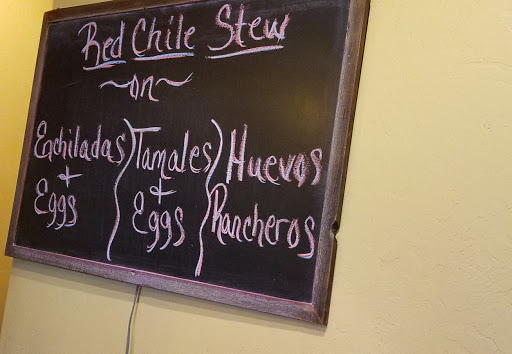 Red Chile Stew
~on~
Enchiladas
+
Eggs
Tamales
+
Eggs
Huevos
Rancheros